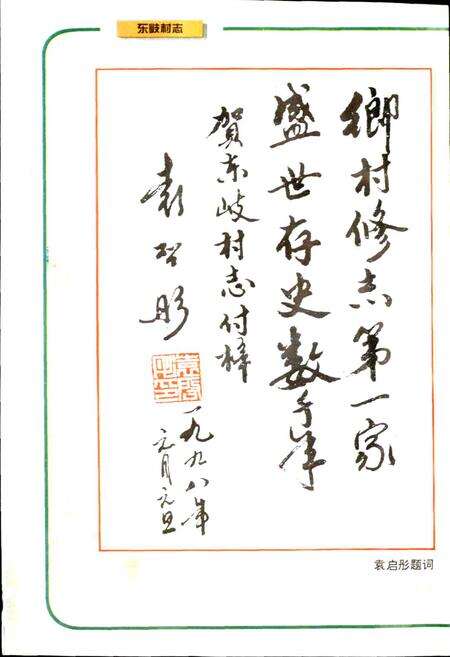 东岐村志
鄉村修志第一家
盛世存史数千年
賀东岐村志付梓
袁啓彤
一九九八年
元月元旦
袁启彤题词